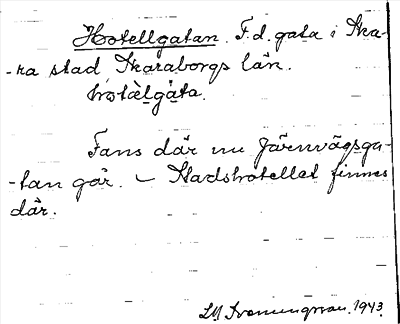 Hotellgatan. F.d. gata i Ska-
-ra stad, Skaraborgs län.
hɷtàlgáta.
Fans där nu Järnvägsga-
-tan går. – Stadshotellet finnes
där.
1943.